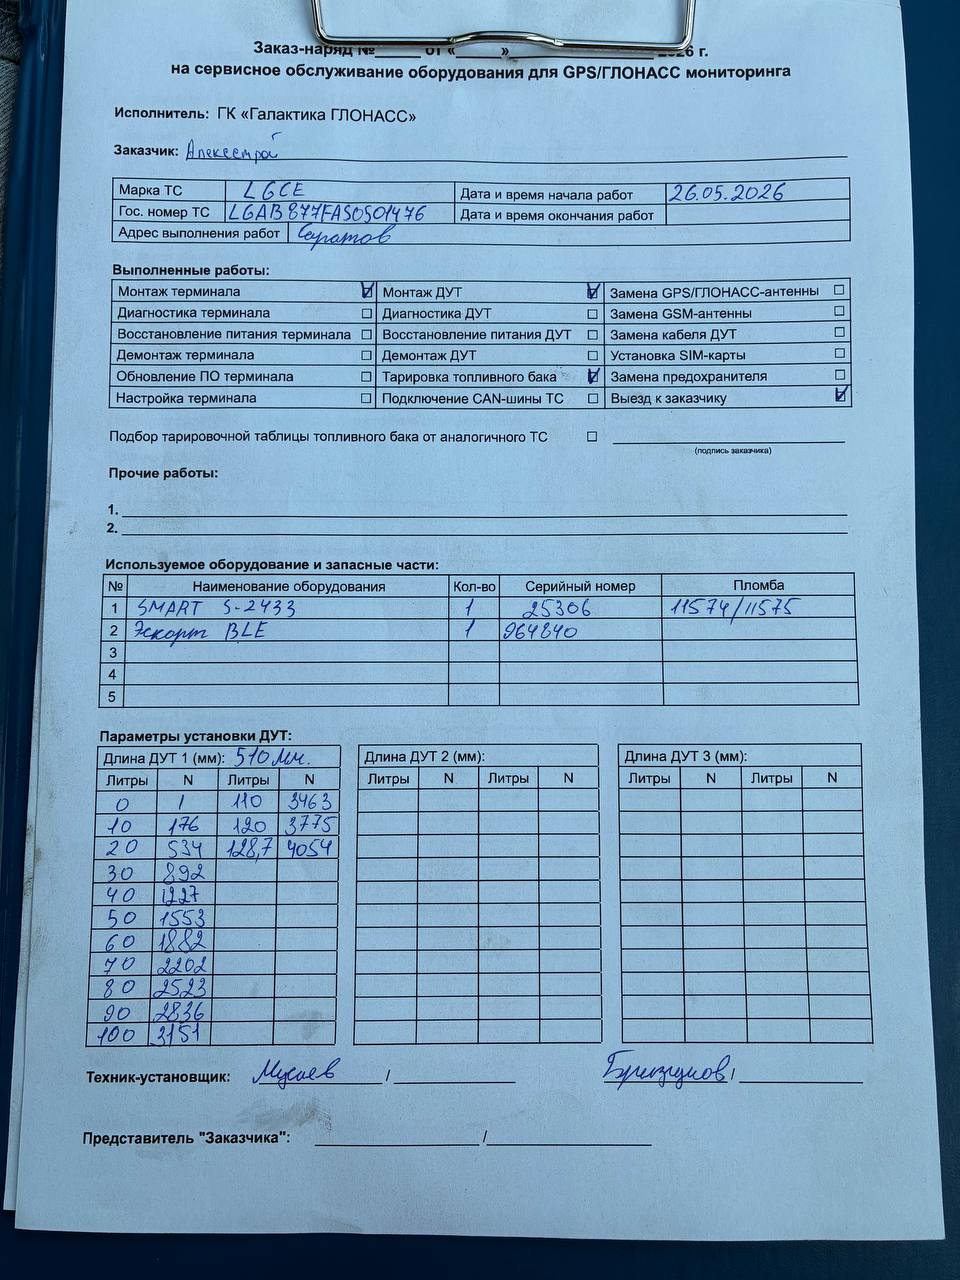 Заказ-наряд № от « » 2026 г.
на сервисное обслуживание оборудования для GPS/ГЛОНАСС мониторинга
Исполнитель: ГК «Галактика ГЛОНАСС»
Заказчик:
Марка ТС LGCE Дата и время начала работ 26.05.2026
Гос. номер ТС LGAB877FAS0501476 Дата и время окончания работ
Адрес выполнения работ Саратов
Выполненные работы:
Монтаж терминала ☑ Монтаж ДУТ ☑ Замена GPS/ГЛОНАСС-антенны ☐
Диагностика терминала ☐ Диагностика ДУТ ☐ Замена GSM-антенны ☐
Восстановление питания терминала ☐ Восстановление питания ДУТ ☐ Замена кабеля ДУТ ☐
Демонтаж терминала ☐ Демонтаж ДУТ ☐ Установка SIM-карты ☐
Обновление ПО терминала ☐ Тарировка топливного бака ☑ Замена предохранителя ☐
Настройка терминала ☐ Подключение CAN-шины ТС ☐ Выезд к заказчику ☑
Подбор тарировочной таблицы топливного бака от аналогичного ТС ☐
(подпись заказчика)
Прочие работы:
1.
2.
Используемое оборудование и запасные части:
№ Наименование оборудования Кол-во Серийный номер Пломба
1 SMART S-2433 1 25306 11574/11575
2 Эскорт BLE 1 964840
3
4
5
Параметры установки ДУТ:
Длина ДУТ 1 (мм): 510 мм. Длина ДУТ 2 (мм): Длина ДУТ 3 (мм):
Литры N Литры N Литры N Литры N Литры N Литры N
0 1 110 3463
10 176 120 3775
20 534 128,7 4054
30 892
40 1227
50 1553
60 1882
70 2202
80 2523
90 2836
100 3151
Техник-установщик: Мусаев / /
Представитель "Заказчика": /